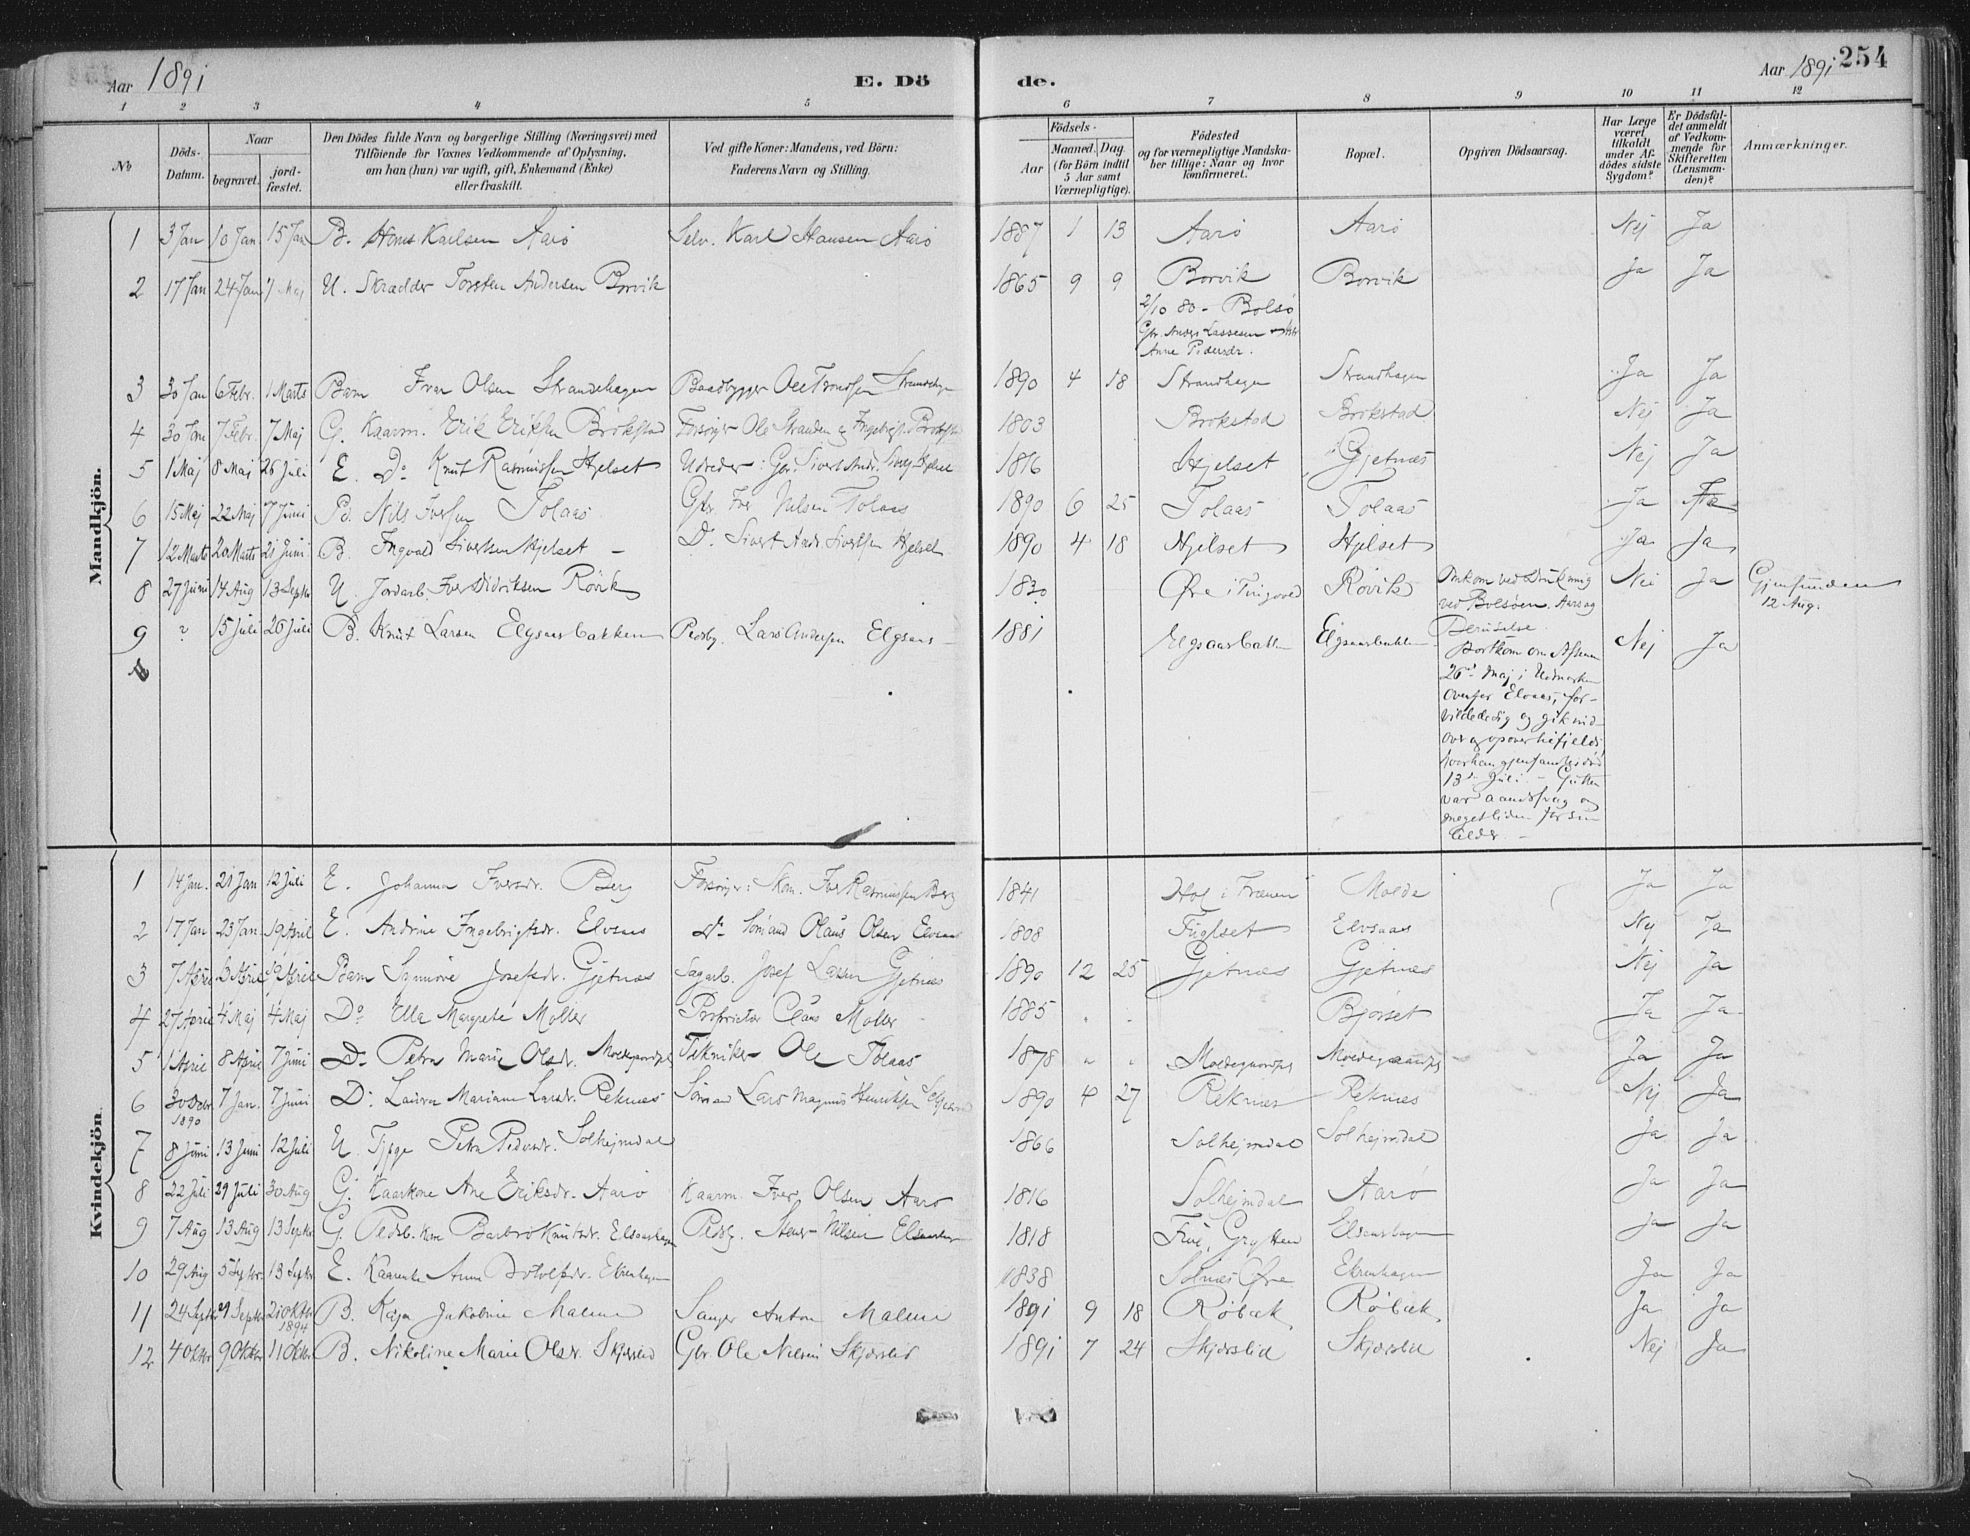 Aar 1891 E. Dö de. Aar 1891 254
1 2 3 4 5 6 7 8 9 10 11 12
No
Döds-Datum.
Naar
begravet.
jord-fæstet.
Den Dödes fulde Navn og borgerlige Stilling (Næringsvei) med
Tilföiende for Voxnes Vedkommende af Oplysning,
om han (hun) var ugift, gift, Enkemand (Enke)
eller fraskilt.
Ved gifte Koner: Mandens, ved Börn:
Faderens Navn og Stilling.
Födsels-
Aar
Maaned. Dag
(for Börn indtil
5 Aar samt
Værnepligtige).
Födested
og for værnepligtige Mandska-
ber tillige: Naar og hvor
konfirmeret.
Bopæl.
Opgiven Dödsaarsag.
Har Læge
været
tilkaldt
under Af-
dødes sidste
Sygdom?
Er Dödsfal-
det anmeldt
af Vedkom-
mende for
Skifteretten
(Lensman-
den)?
Anmærkninger.
Mandkjön.
1 3 Jan 10 Jan. 15 Jan B. Hans Karlsen Aarö Selv. Karl Hansen Aarö 1887 1 13 Aarö Aarö Nej Ja
2 17 Jan 24 Jan 7 Maj U. Skrædder Torsten Andersen Borvik 1865 9 9 Borvik Borvik Ja Ja
2/10 80 - Bolsö
Gbr. Anders Lassesen
Anne Pedersdr.
3 30 Jan 6 Febr. 1 Marts Barn Iver Olsen Strandehagen Baadbygger Ole Trondsen 1890 4 18 Strandhagen Strandhagen Ja Ja
4 30 Jan 7 Febr. 7 Maj G. Kaarm. Erik Eriksen Brökstad Forsörger Ole Stranden Ingebrigt 1803 Brokstad Brokstad Nej Ja
5 1 Maj 8 Maj 26 Juli E. Do Knut Rasmussen Hjelset Udreder: Gbr. Sivert Andr. 1816 Hjelset Gjetnæs Nej Ja
6 15 Maj 22 Maj 7 Juni Nils Iversen Tolaas Gbr. Iver Nilsen Tolaas 1890 6 25 Tolaas Tolaas Ja Ja
7 12 Marts 20 Marts 21 Juni B. Ingvald Sivertsen Hjelset - D. Sivert Andr. Sivertsen Hjelset 1890 4 18 Hjelset Hjelset Ja Ja
8 27 Juni 14 Aug 13 Septbr U. Jordarb. Iver Didriksen Rövik 1830 Øre i Tingvold Rövik Omkom ved Drukning Nei Ja Gjenfunden
ved Bolsöen. Aarsag 12 Aug.
Beruselse.
9 ? 15 Juli 26 Juli B. Knut Larsen Elgsaasbakken Pedsbg. Lars Andersen Elgsaas- 1881 Elgsaasbakken Elgsaasbakken Nej Ja
Bortkom om Aftenen
26de Maj i Udmarken
ovenfor Elvsaas, for-
vildede sig og gik vid-
ere og opover tilfjelds,
hvor han gjenfandtes död
13de Juli. - Gutten
var aandssvag og
meget liden for sin
Alder. -
Kvindekjön.
1 14 Jan. 21 Jan 12 Juli E. Johanna Iversdr. Berg Forsörger: Skom. Iver Rasmussen Berg 1841 Hol i Frænen Molde Ja Ja
2 17 Jan 23 Jan. 19 April E. Andrine Ingebrigtsdr. Elvsaas Do Sömand Olaus Olsen Elvsaas 1808 Fuglset Elvsaas Nej Ja
3 7 April 13 April 19 April Barn Synnöve Josefsdr. Gjetnæs Sagarb. Josef Larsen Gjetnæs 1890 12 25 Gjetnæs Gjetnæs Nej Ja
4 27 April 4 Maj 4 Maj Do Ella Margrete Möller Proprietær Claus Möller 1885 " " Björset Ja Ja
5 1 April 8 April 7 Juni Do Petra Marie Olsdr. Moldegaardspl. Tekniker Ole Tolaas 1878 " " Moldegaardspl. Moldegaardspl. Ja Ja
6 30 Decbr 1890 7 Jan. 7 Juni Do Laura Mariane Larsdr. Reknæs Sömand Lars Magnus Henriksen 1890 4 27 Reknæs Reknæs Nej Ja
7 8 Juni 13 Juni 12 Juli U. Tjpge Petra Pedersdr. Solhejmdal 1866 Solhejmdal Solhejmdal Ja Ja
8 22 Juli 29 Juli 30 Aug G. Kaarkone Ane Eriksdr. Aarö Kaarm. Iver Olsen Aarö 1816 Solhejmdal Aarö Ja Ja
9 7 Aug 13 Aug 13 Septbr G. Pedsb. kone Barbro Knutsdr. Elsaashagen Pedsbg. Nilsen Elsaashagen 1818 Grytten Elsaashagen Ja Ja
10 29 Aug 5 Septbr. 13 Septbr E. Kaarenke Anna Ekrenhagen 1838 Solnæs Øre Ekrenhagen Ja Ja
11 24 Septbr 29 Septbr 21 Oktbr 1894 B. Kaja Jakobine Malme Sanger Anton Malme 1891 9 18 Röbæk Röbæk Ja Ja
12 4 Oktbr 9 Oktbr 11 Oktbr B. Nikoline Marie Olsdr. Skjærslid Gbr. Ole Nilsen Skjærslid 1891 7 24 Skjærslid Skjærslid Nej Ja